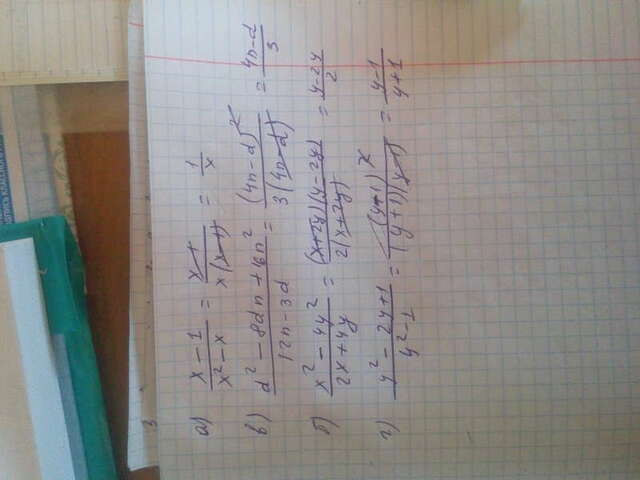 3
а) \frac{x-1}{x^2-x} = \frac{x-1}{x(x-1)} = \frac{1}{x}
в) \frac{d^2-8dn+16n^2}{12n-3d} = \frac{(4n-d)^2}{3(4n-d)} = \frac{4n-d}{3}
б) \frac{x^2-4y^2}{2x+4y} = \frac{(x+2y)(y-2y)}{2(x+2y)} = \frac{y-2y}{2}
г) \frac{y^2-2y+1}{y^2-1} = \frac{(y+1)^2}{(y+1)(y-1)} = \frac{y-1}{y+1}